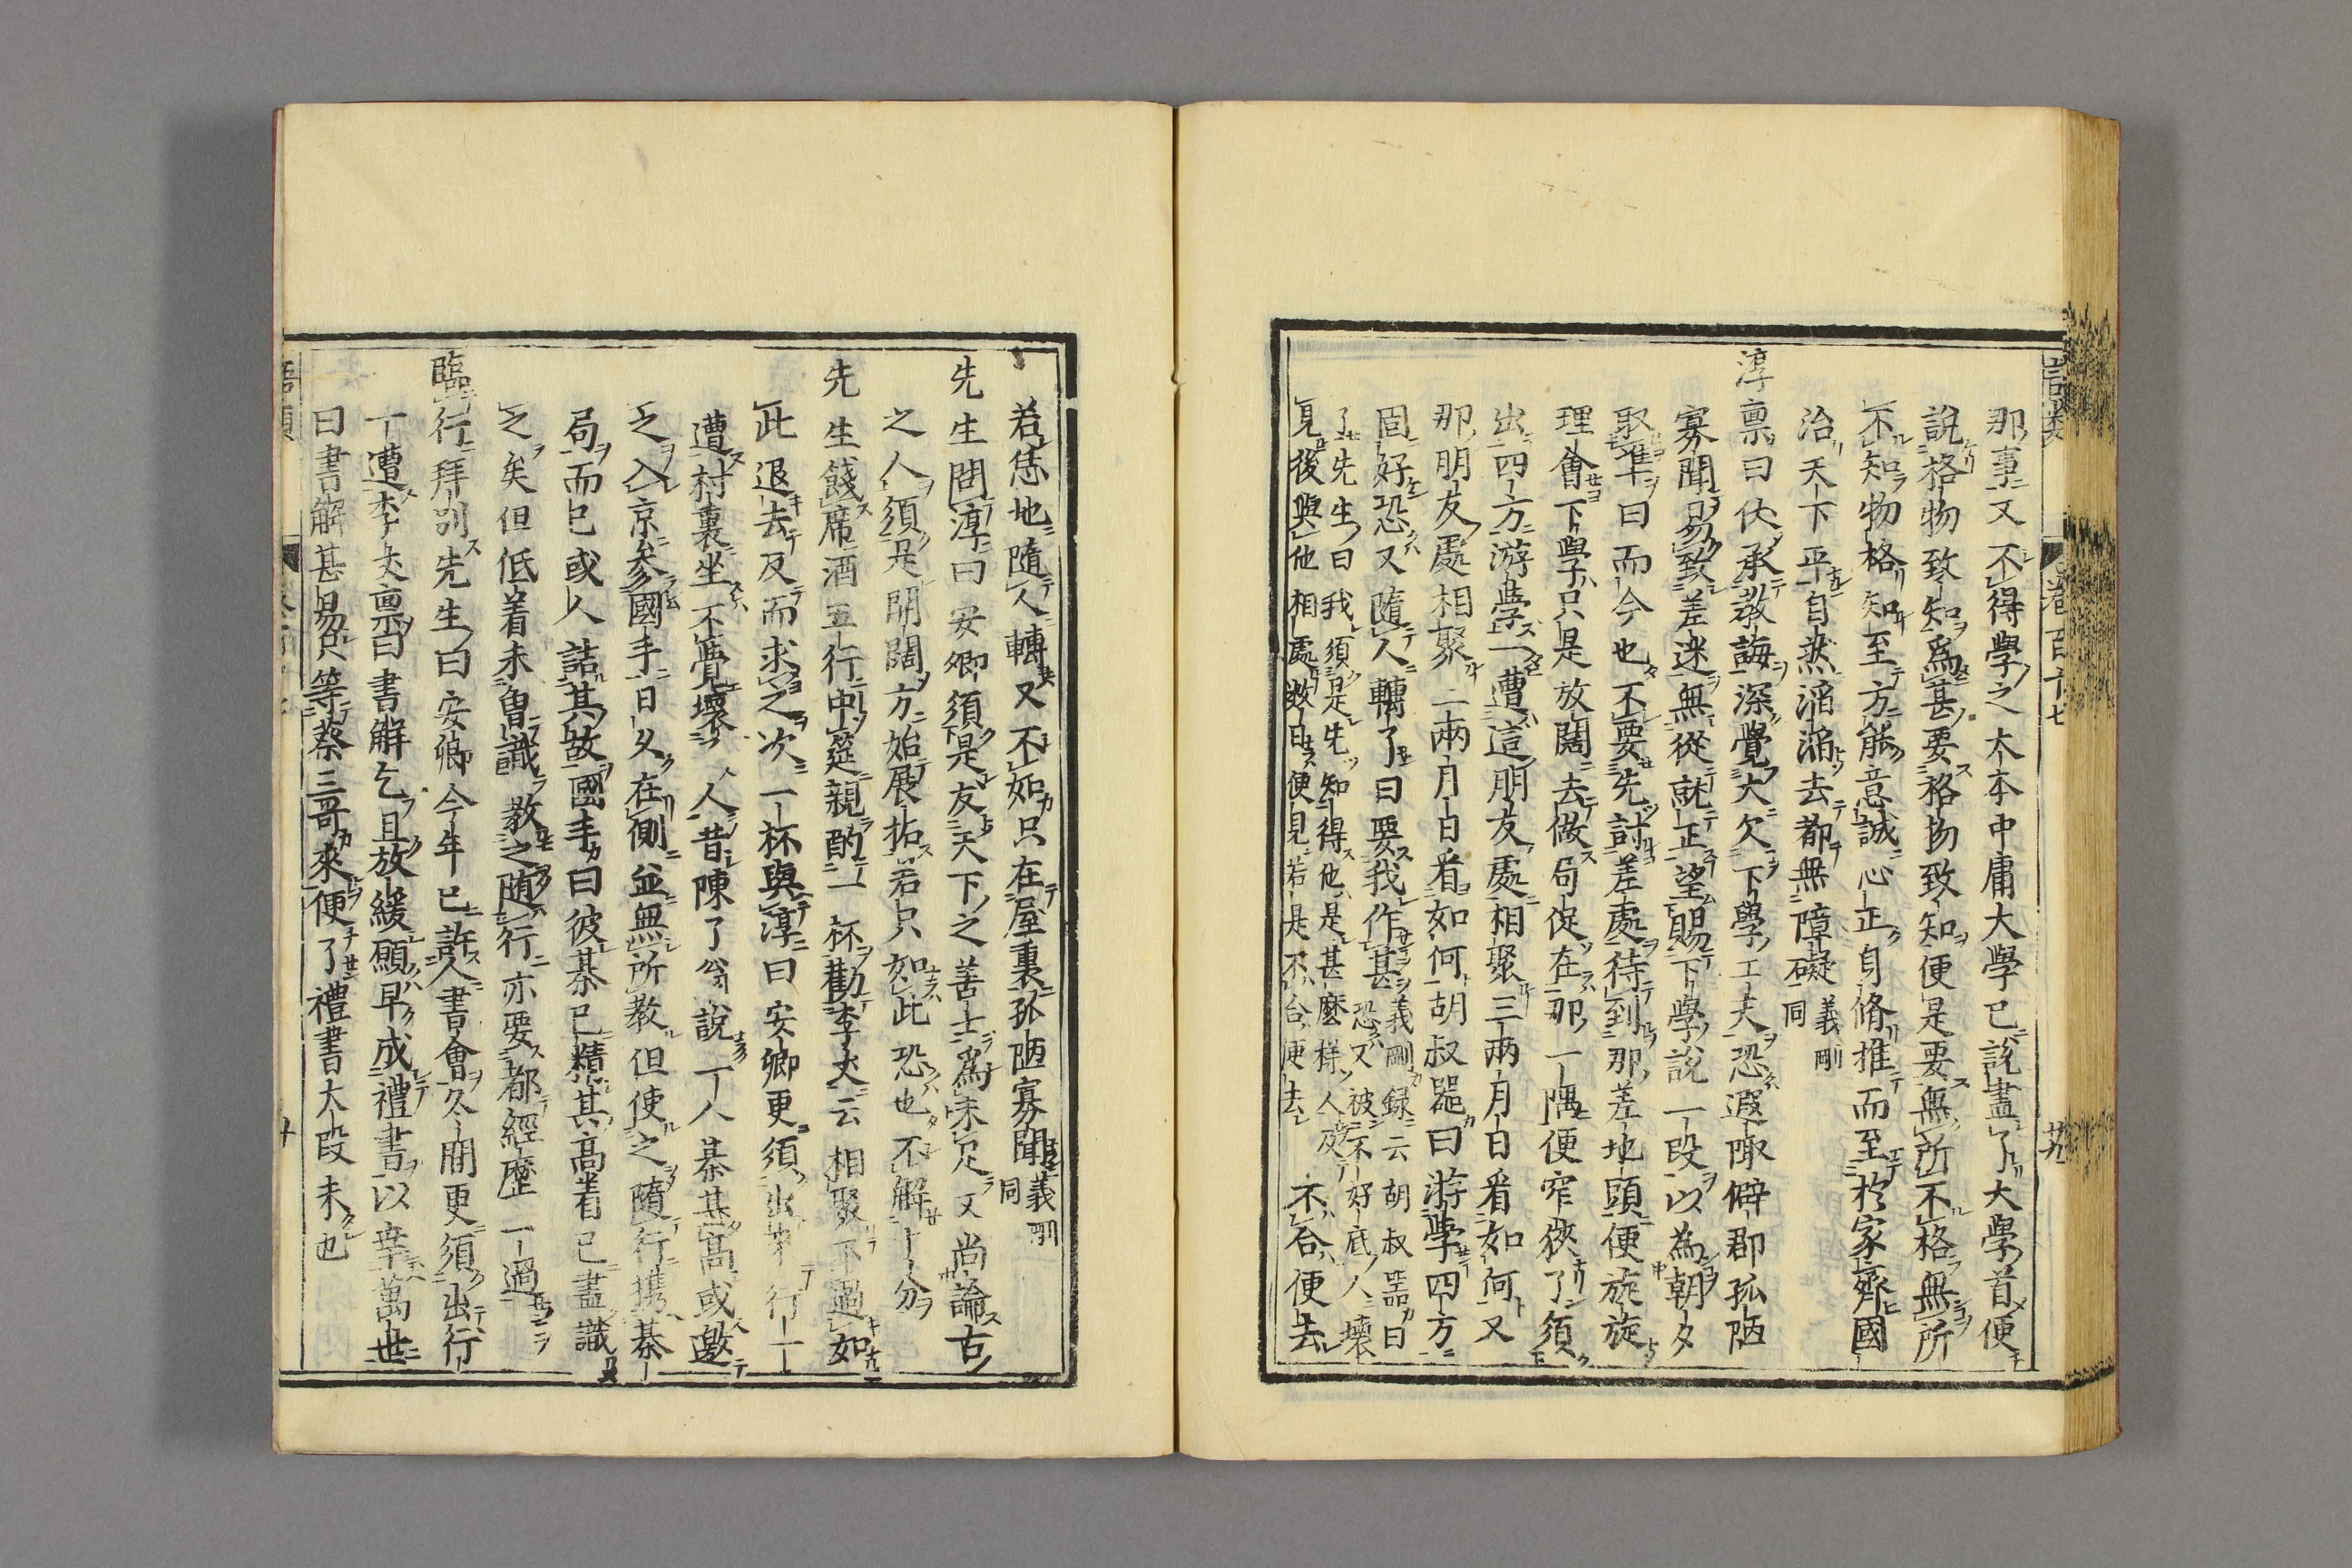 那事又不得學之大本中庸大學已說盡了大學首便
說格物致知爲甚要格物致知便是要無所不格無所
不知物格知至方能意誠心正身脩推而至於家齊國
治天下平自然滔滔去都無障礙 義剛同
淳禀曰伏承教誨深覺大欠下學工夫恐遐陬僻郡孤陋
寡聞易致差迷無從就正望賜下學說一段以為朝夕
取準曰而今也不要先討差處待到那差地頭便旋旋
理會下學只是放闊去做局促在那一隅便窄狹了須
出四方游學一遭這朋友處相聚三兩月日看如何又
那朋友處相聚二兩月日看如何胡叔噐曰游學四方
固好恐又隨人轉了曰要我作甚 義剛録云胡叔噐曰恐又被不好底人壞
了先生曰我須是先知得他是甚麼樣人及
見後與他相處數日便見若是不合便去 不合便去
若恁地隨人轉又不如只在屋裏孤陋寡聞 義剛同
先生問淳曰安卿須是友天下之善士爲未足又尚論古
之人須是開闊方始展拓若只如此恐也不解十分
先生餞席酒五行中筵親酌一杯勸李丈云相聚不過如
此退去反而求之次一杯與淳曰安卿更須出來行一
遭村裏坐不覺壞人昔陳了翁說一人棊甚高或邀
之入京參國手日久在側並無所教但使之隨行携棊
局而已或人詰其故國手曰彼棊已精其高着已盡識
之矣但低着未曽識教之随行亦要都經歷一過
臨行拜別先生曰安卿今年已許人書會冬間更須出行
一遭李丈禀曰書解乞且放緩願早成禮書以幸萬世
曰書解甚易只等蔡三哥來便了禮書大段未也
語類
卷百十七
廿九
語類